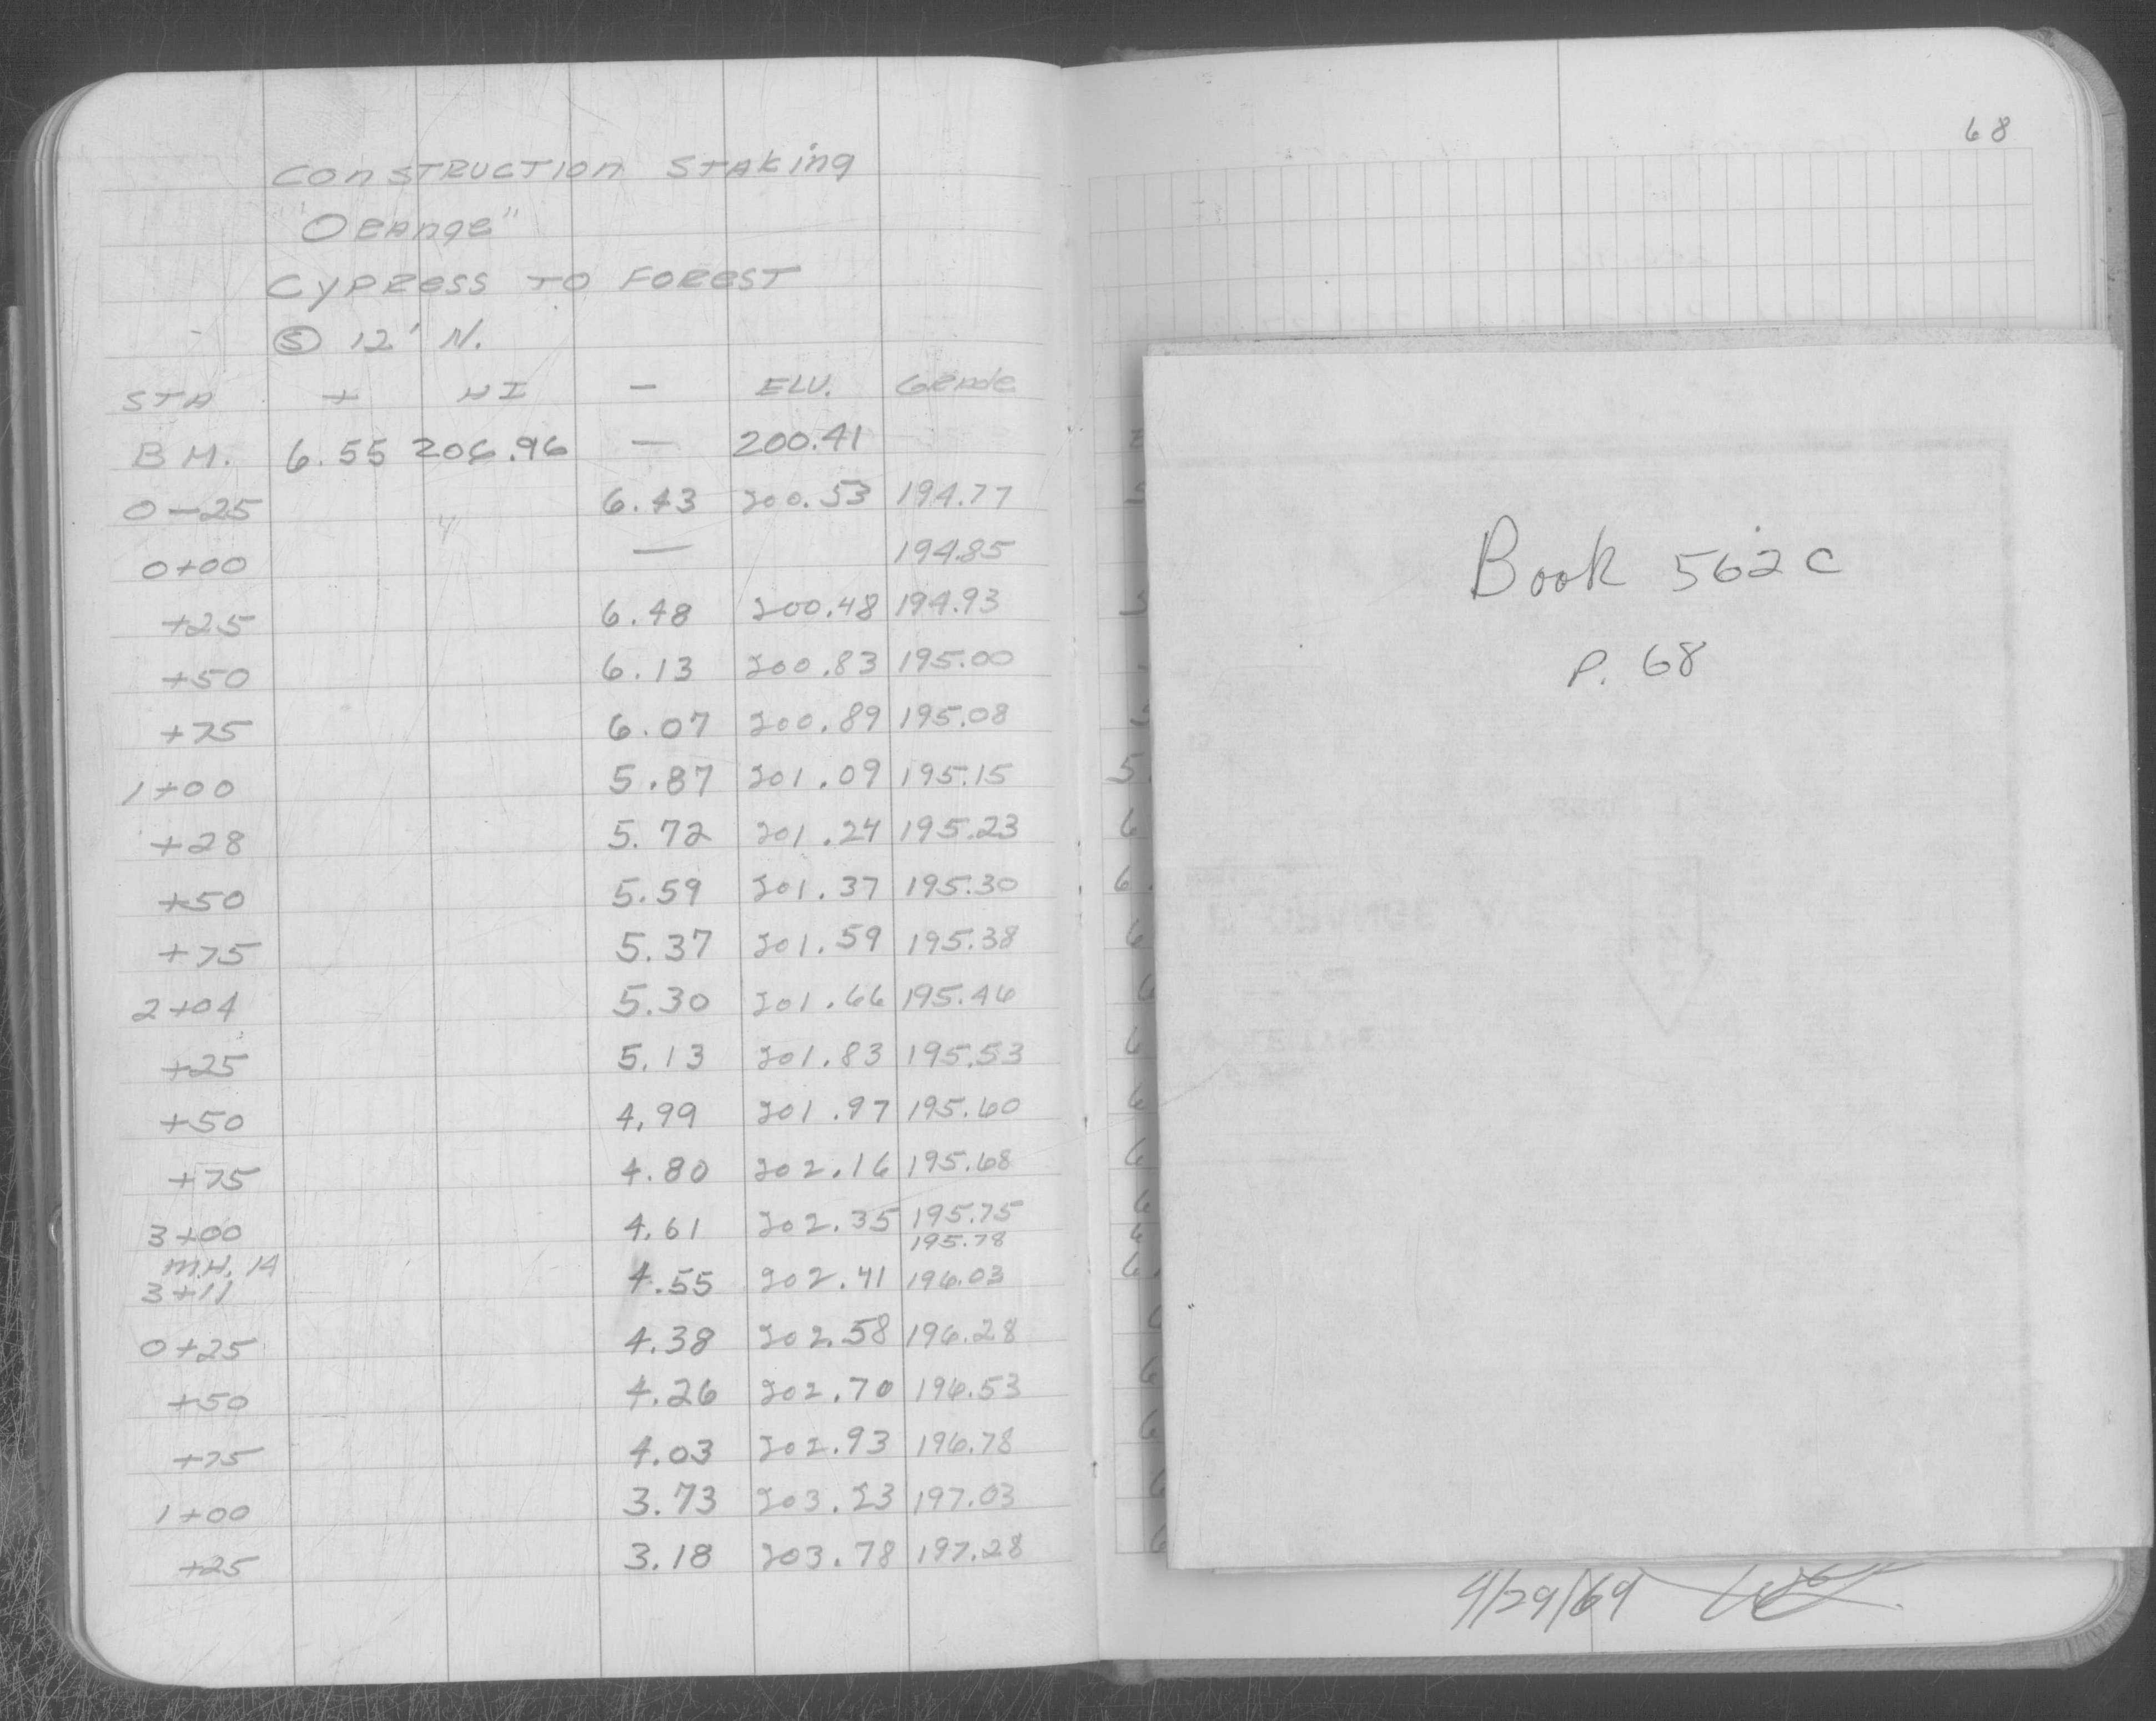 Construction Staking
"Orange"
Cypress to Forest
Ⓢ 12' N.
STA + HI - ELV. Grade
B M. 6.55 206.96 — 200.41
0-25 6.43 200.53 194.77
0+00 — 194.85
+25 6.48 200.48 194.93
+50 6.13 200.83 195.00
+75 6.07 200.89 195.08
1+00 5.87 201.09 195.15
+28 5.72 201.24 195.23
+50 5.59 201.37 195.30
+75 5.37 201.59 195.38
2+04 5.30 201.66 195.46
+25 5.13 201.83 195.53
+50 4.99 201.97 195.60
+75 4.80 202.16 195.68
3+00 4.61 202.35 195.75
195.78
M.H. 14
3+11 4.55 202.41 196.03
0+25 4.38 202.58 196.28
+50 4.26 202.70 196.53
+75 4.03 202.93 196.78
1+00 3.73 203.23 197.03
+25 3.18 203.78 197.28
68
Book 562C
P. 68
4/29/69